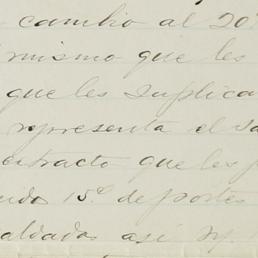 cambio al 20%
mismo que les
que les suplica
representa el sa
extracto que les
uido 15.º de portes
aldados así